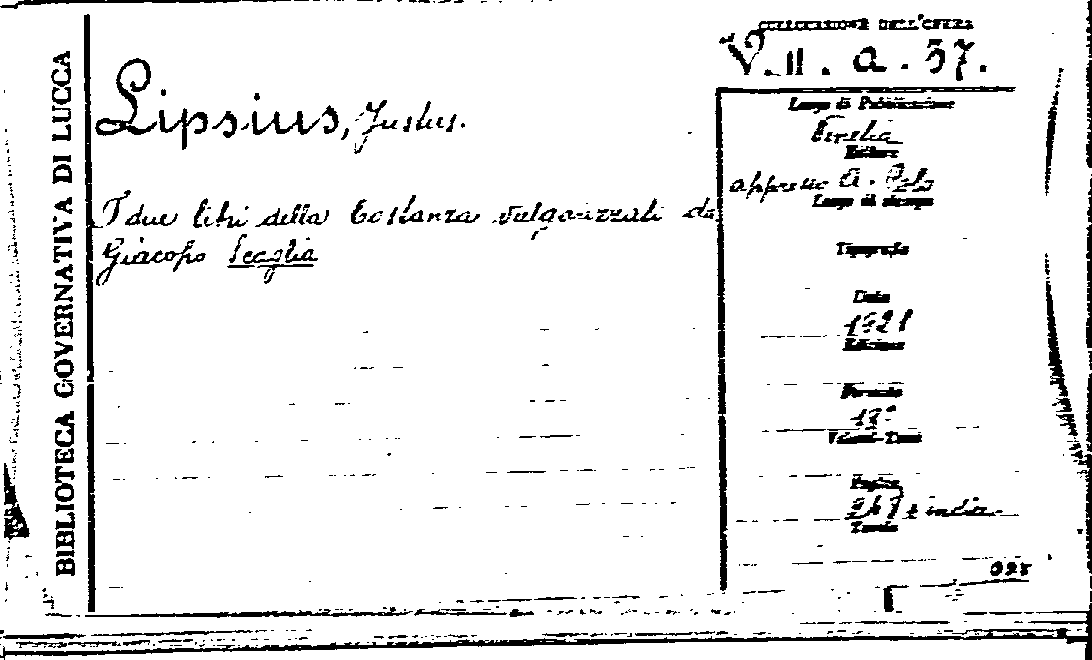 BIBLIOTECA GOVERNATIVA DI LUCCA
COLLOCAZIONE DELL'OPERA
V. II. a. 37.
Lipsius, Justus.
I due libri della Costanza vulgarizzati da
Giacopo Scaglia
Luogo di Pubblicazione
Venetia
Editore
appresso A. Polo
Luogo di stampa
Tipografo
Data
1621
Edizione
Formato
12°
Volumi-Tomi
Pagine
e indice
Tavole